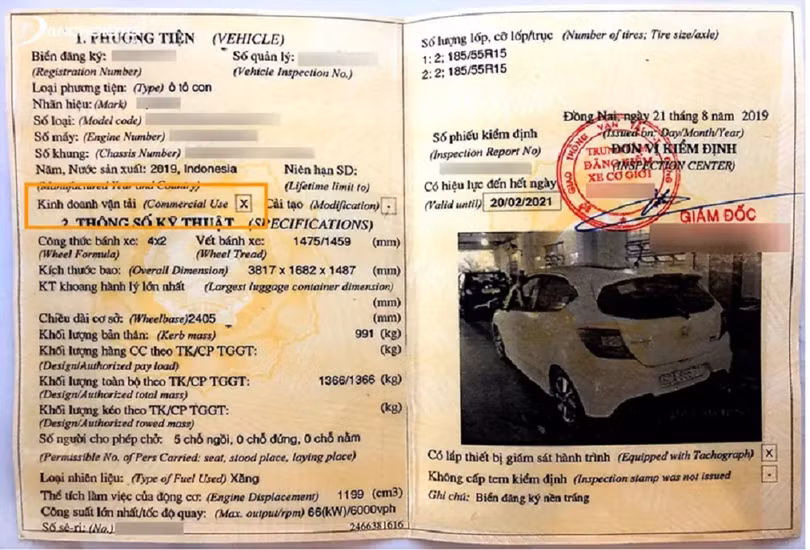 1. PHƯƠNG TIỆN (VEHICLE)
Biển đăng ký:
(Registration Number)
Số quản lý:
(Vehicle Inspection No.)
Loại phương tiện: (Type) Ô tô con
Nhãn hiệu: (Mark)
Số loại: (Model code)
Số máy: (Engine Number)
Số khung: (Chassis Number)
Năm, Nước sản xuất: 2019, Indonesia
(Manufactured Year and Country)
Niên hạn SD:
(Lifetime limit to)
Kinh doanh vận tải (Commercial Use X
Cải tạo (Modification) -
2. THÔNG SỐ KỸ THUẬT (SPECIFICATIONS)
Công thức bánh xe: 4x2 Vết bánh xe: 1475/1459 (mm)
(Wheel Formula) (Wheel Tread)
Kích thước bao: (Overall Dimension) 3817 x 1682 x 1487 (mm)
KT khoang hành lý lớn nhất (Largest luggage container dimension)
(mm)
Chiều dài cơ sở: (Wheelbase) 2405 (mm)
Khối lượng bản thân: (Kerb mass) 991 (kg)
Khối lượng hàng CC theo TK/CP TGGT: (kg)
(Design/Authorized pay load)
Khối lượng toàn bộ theo TK/CP TGGT: 1366/1366 (kg)
(Design/Authorized total mass)
Khối lượng kéo theo TK/CP TGGT: (kg)
(Design/Authorized towed mass)
Số người cho phép chở: 5 chỗ ngồi, 0 chỗ đứng, 0 chỗ nằm
(Permissible No. of Pers Carried: seat, stood place, laying place)
Loại nhiên liệu: (Type of Fuel Used) Xăng
Thể tích làm việc của động cơ: (Engine Displacement) 1199 (cm3)
Công suất lớn nhất/tốc độ quay: (Max. output/rpm) 66(kW)/6000vph
Số sê-ri: (No.) 2466381616
Số lượng lốp, cỡ lốp/trục (Number of tires; Tire size/axle)
1: 2; 185/55R15
2: 2; 185/55R15
Đồng Nai, ngày 21 tháng 8 năm 2019
(Issued on: Day/Month/Year)
Số phiếu kiểm định
(Inspection Report No)
ĐƠN VỊ KIỂM ĐỊNH
(INSPECTION CENTER)
TRUNG TÂM
ĐĂNG KIỂM
XE CƠ GIỚI
Có hiệu lực đến hết ngày
(Valid until) 20/02/2021
GIÁM ĐỐC
Có lắp thiết bị giám sát hành trình (Equipped with Tachograph) X
Không cấp tem kiểm định (Inspection stamp was not issued) -
Ghi chú: Biển đăng ký nền trắng